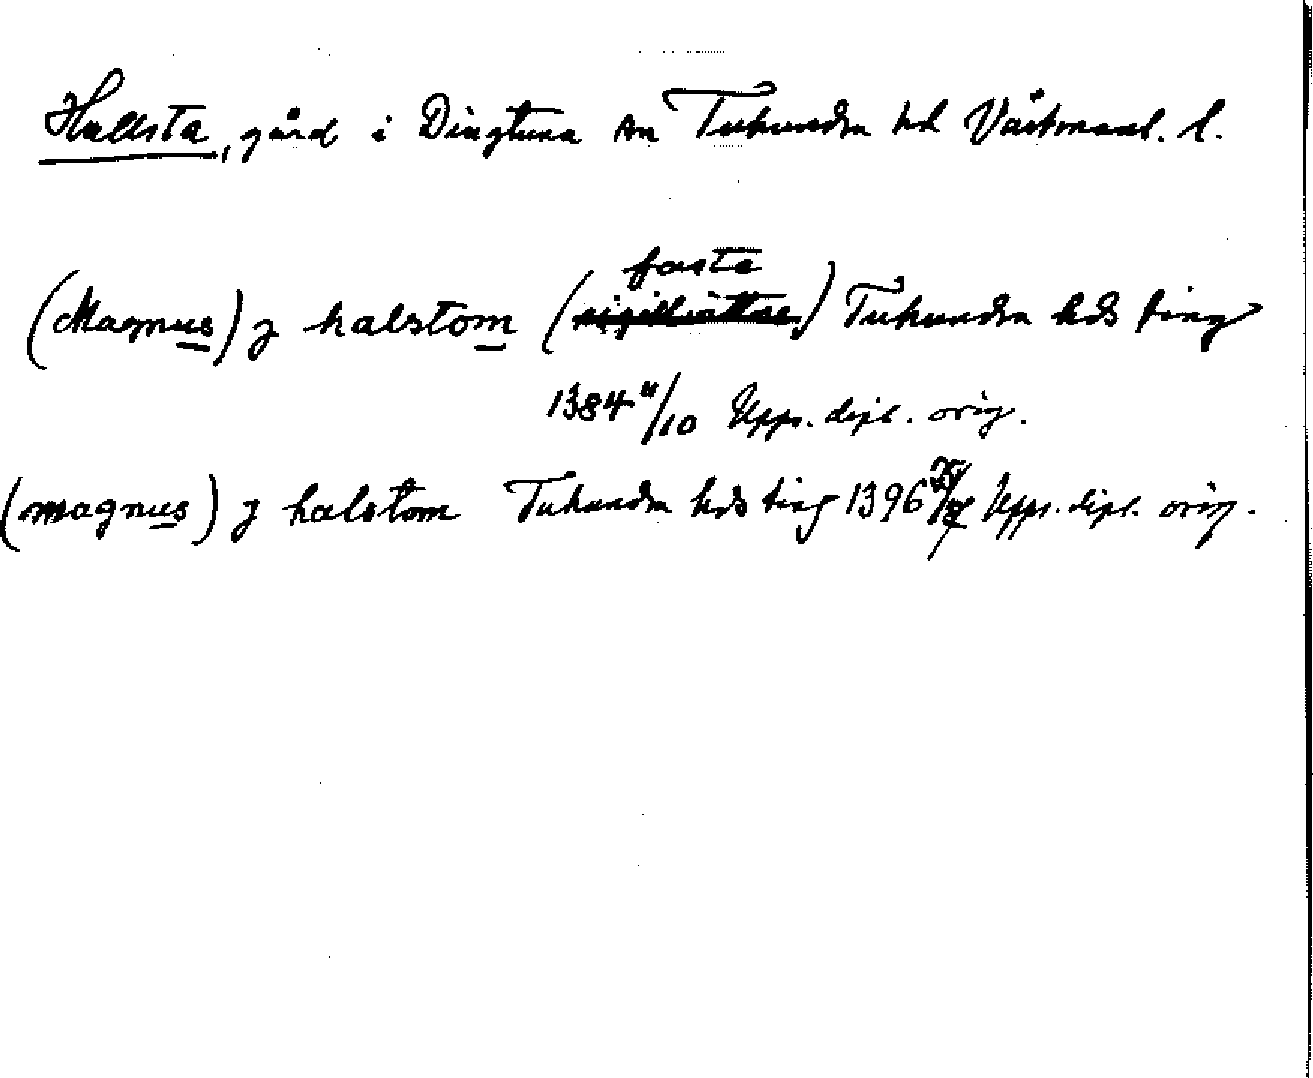 Hallsta, gård i Dingtuna sn Tuhundra hd Västmanl. l.
faste
(Magnus) j halstom (sigillvittne) Tuhundra hds ting
1384 11/10 Upps. dipl. orig.
(magnus) j halstom Tuhundra hds ting 1396 Upps. dipl. orig.